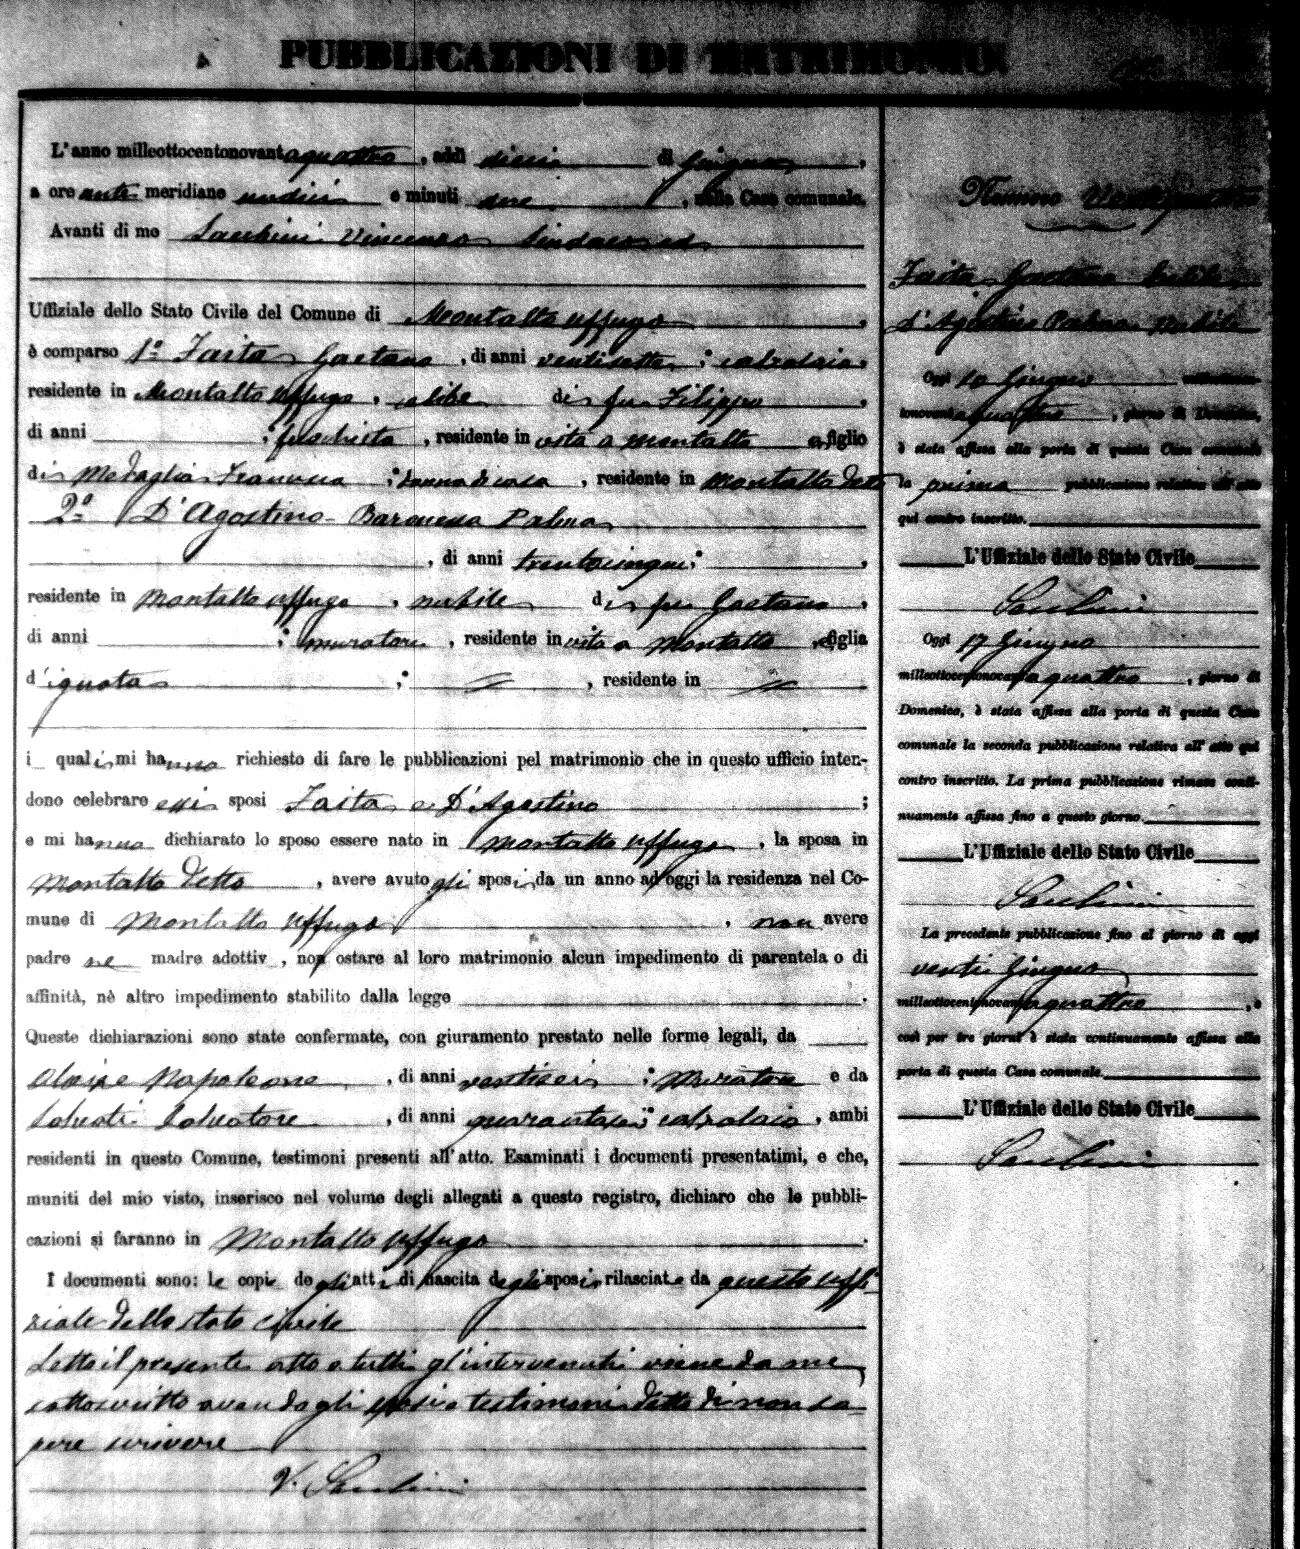 PUBBLICAZIONI DI MATRIMONIO
L'anno milleottocentonovantaquattro, addì dieci di Giugno,
a ore ante meridiane undici e minuti due, nella Casa comunale.
Avanti di me Vincenzo Sindaco ed
Uffiziale dello Stato Civile del Comune di Montalto Uffugo,
è comparso 1º Faita Gaetano, di anni ventisette; calzolaio,
residente in Montalto Uffugo, celibe di fu Filippo,
di anni ; , residente in vita a Montalto, e figlio
di Medaglia Francesca; donna di casa, residente in Montalto detto
2º D'Agostino Baronessa Palma
, di anni trentacinque; ,
residente in Montalto Uffugo, nubile di fu Gaetano,
di anni ; muratore, residente in vita a Montalto, e figlia
d'ignota ; = , residente in =
i quali mi hanno richiesto di fare le pubblicazioni pel matrimonio che in questo ufficio inten-
dono celebrare essi sposi Faita e D'Agostino ;
e mi hanno dichiarato lo sposo essere nato in Montalto Uffugo, la sposa in
Montalto detto, avere avuto gli sposi da un anno ad oggi la residenza nel Co-
mune di Montalto Uffugo, non avere
padre ne madre adottiv , non ostare al loro matrimonio alcun impedimento di parentela o di
affinità, nè altro impedimento stabilito dalla legge .
Queste dichiarazioni sono state confermate, con giuramento prestato nelle forme legali, da
Napoleone, di anni ventisei; Muratore e da
Salvatore, di anni quarantasei; calzolaio, ambi
residenti in questo Comune, testimoni presenti all'atto. Esaminati i documenti presentatimi, e che,
muniti del mio visto, inserisco nel volume degli allegati a questo registro, dichiaro che le pubbli-
cazioni si faranno in Montalto Uffugo.
I documenti sono: le copie degli atti di nascita degli sposi rilasciate da questo Uffi-
ziale dello stato civile
Letto il presente atto a tutti gl'intervenuti viene da me
sottoscritto avendo gli sposi e testimoni detto di non sa-
pere scrivere
V.
Numero Ventiquattro
Faita Gaetano celibe
D'Agostino Palma nubile
Oggi 10 Giugno milleottocen-
tonovantaquattro, giorno di Domenica,
è stata affissa alla porta di questa Casa comunale
la prima pubblicazione relativa all'atto
qui contro inscritto.
L'Uffiziale dello Stato Civile
Oggi 17 Giugno
milleottocentonovantaquattro, giorno di
Domenica, è stata affissa alla porta di questa Casa
comunale la seconda pubblicazione relativa all'atto qui
contro inscritto. La prima pubblicazione rimase conti-
nuamente affissa fino a questo giorno.
L'Uffiziale dello Stato Civile
La precedente pubblicazione fino al giorno di oggi
venti Giugno
milleottocentonovantaquattro, e
così per tre giorni è stata continuamente affissa alla
porta di questa Casa comunale.
L'Uffiziale dello Stato Civile